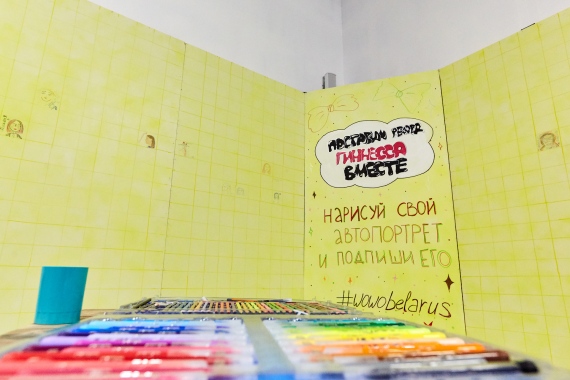 ПОСТАВИМ РЕКОРД
ГИННЕССА
ВМЕСТЕ
НАРИСУЙ СВОЙ
АВТОПОРТРЕТ
И ПОДПИШИ ЕГО
#wowobelarus